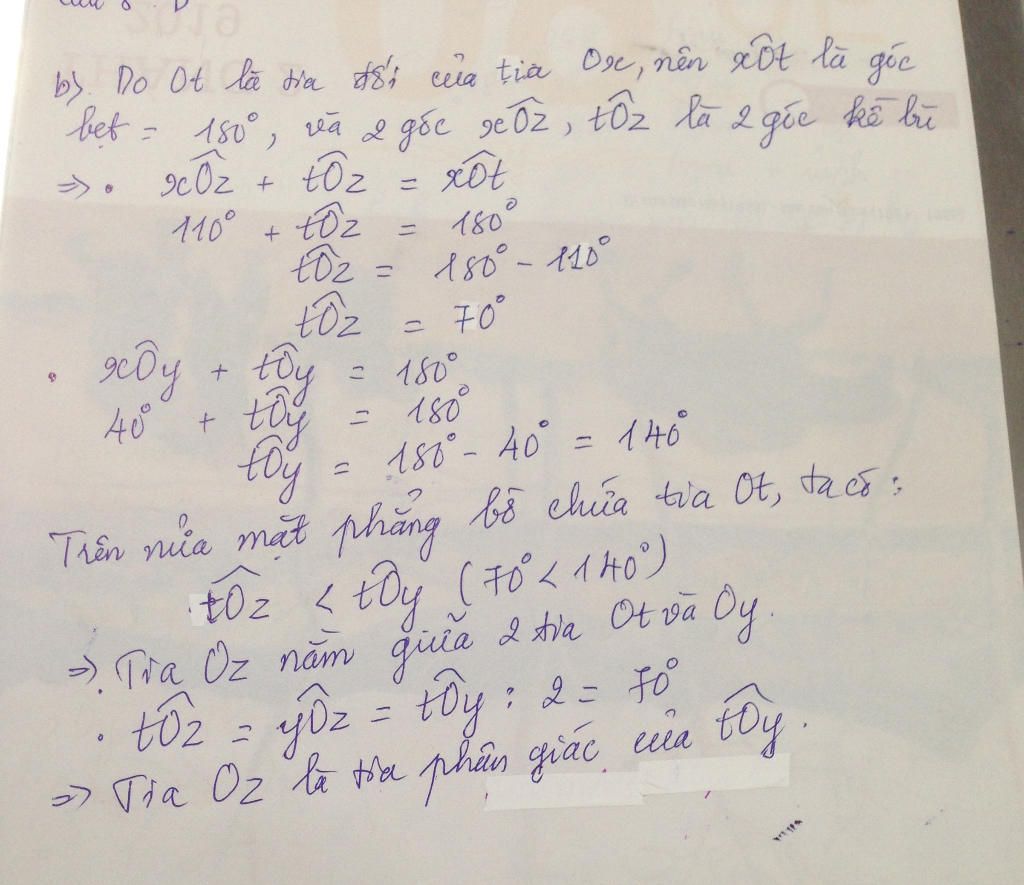 b). Do Ot là tia đối của tia Ox, nên xÔt là góc
bẹt = 180°, và 2 góc xÔz, tÔz là 2 góc kề bù
=> . xÔz + tÔz = xÔt
110° + tÔz = 180°
tÔz = 180° - 110°
tÔz = 70°
. xÔy + tÔy = 180°
40° + tÔy = 180°
tÔy = 180° - 40° = 140°
Trên nửa mặt phẳng bờ chứa tia Ot, ta có :
tÔz < tÔy (70° < 140°)
=> Tia Oz nằm giữa 2 tia Ot và Oy.
. tÔz = yÔz = tÔy : 2 = 70°
=> Tia Oz là tia phân giác của tÔy.